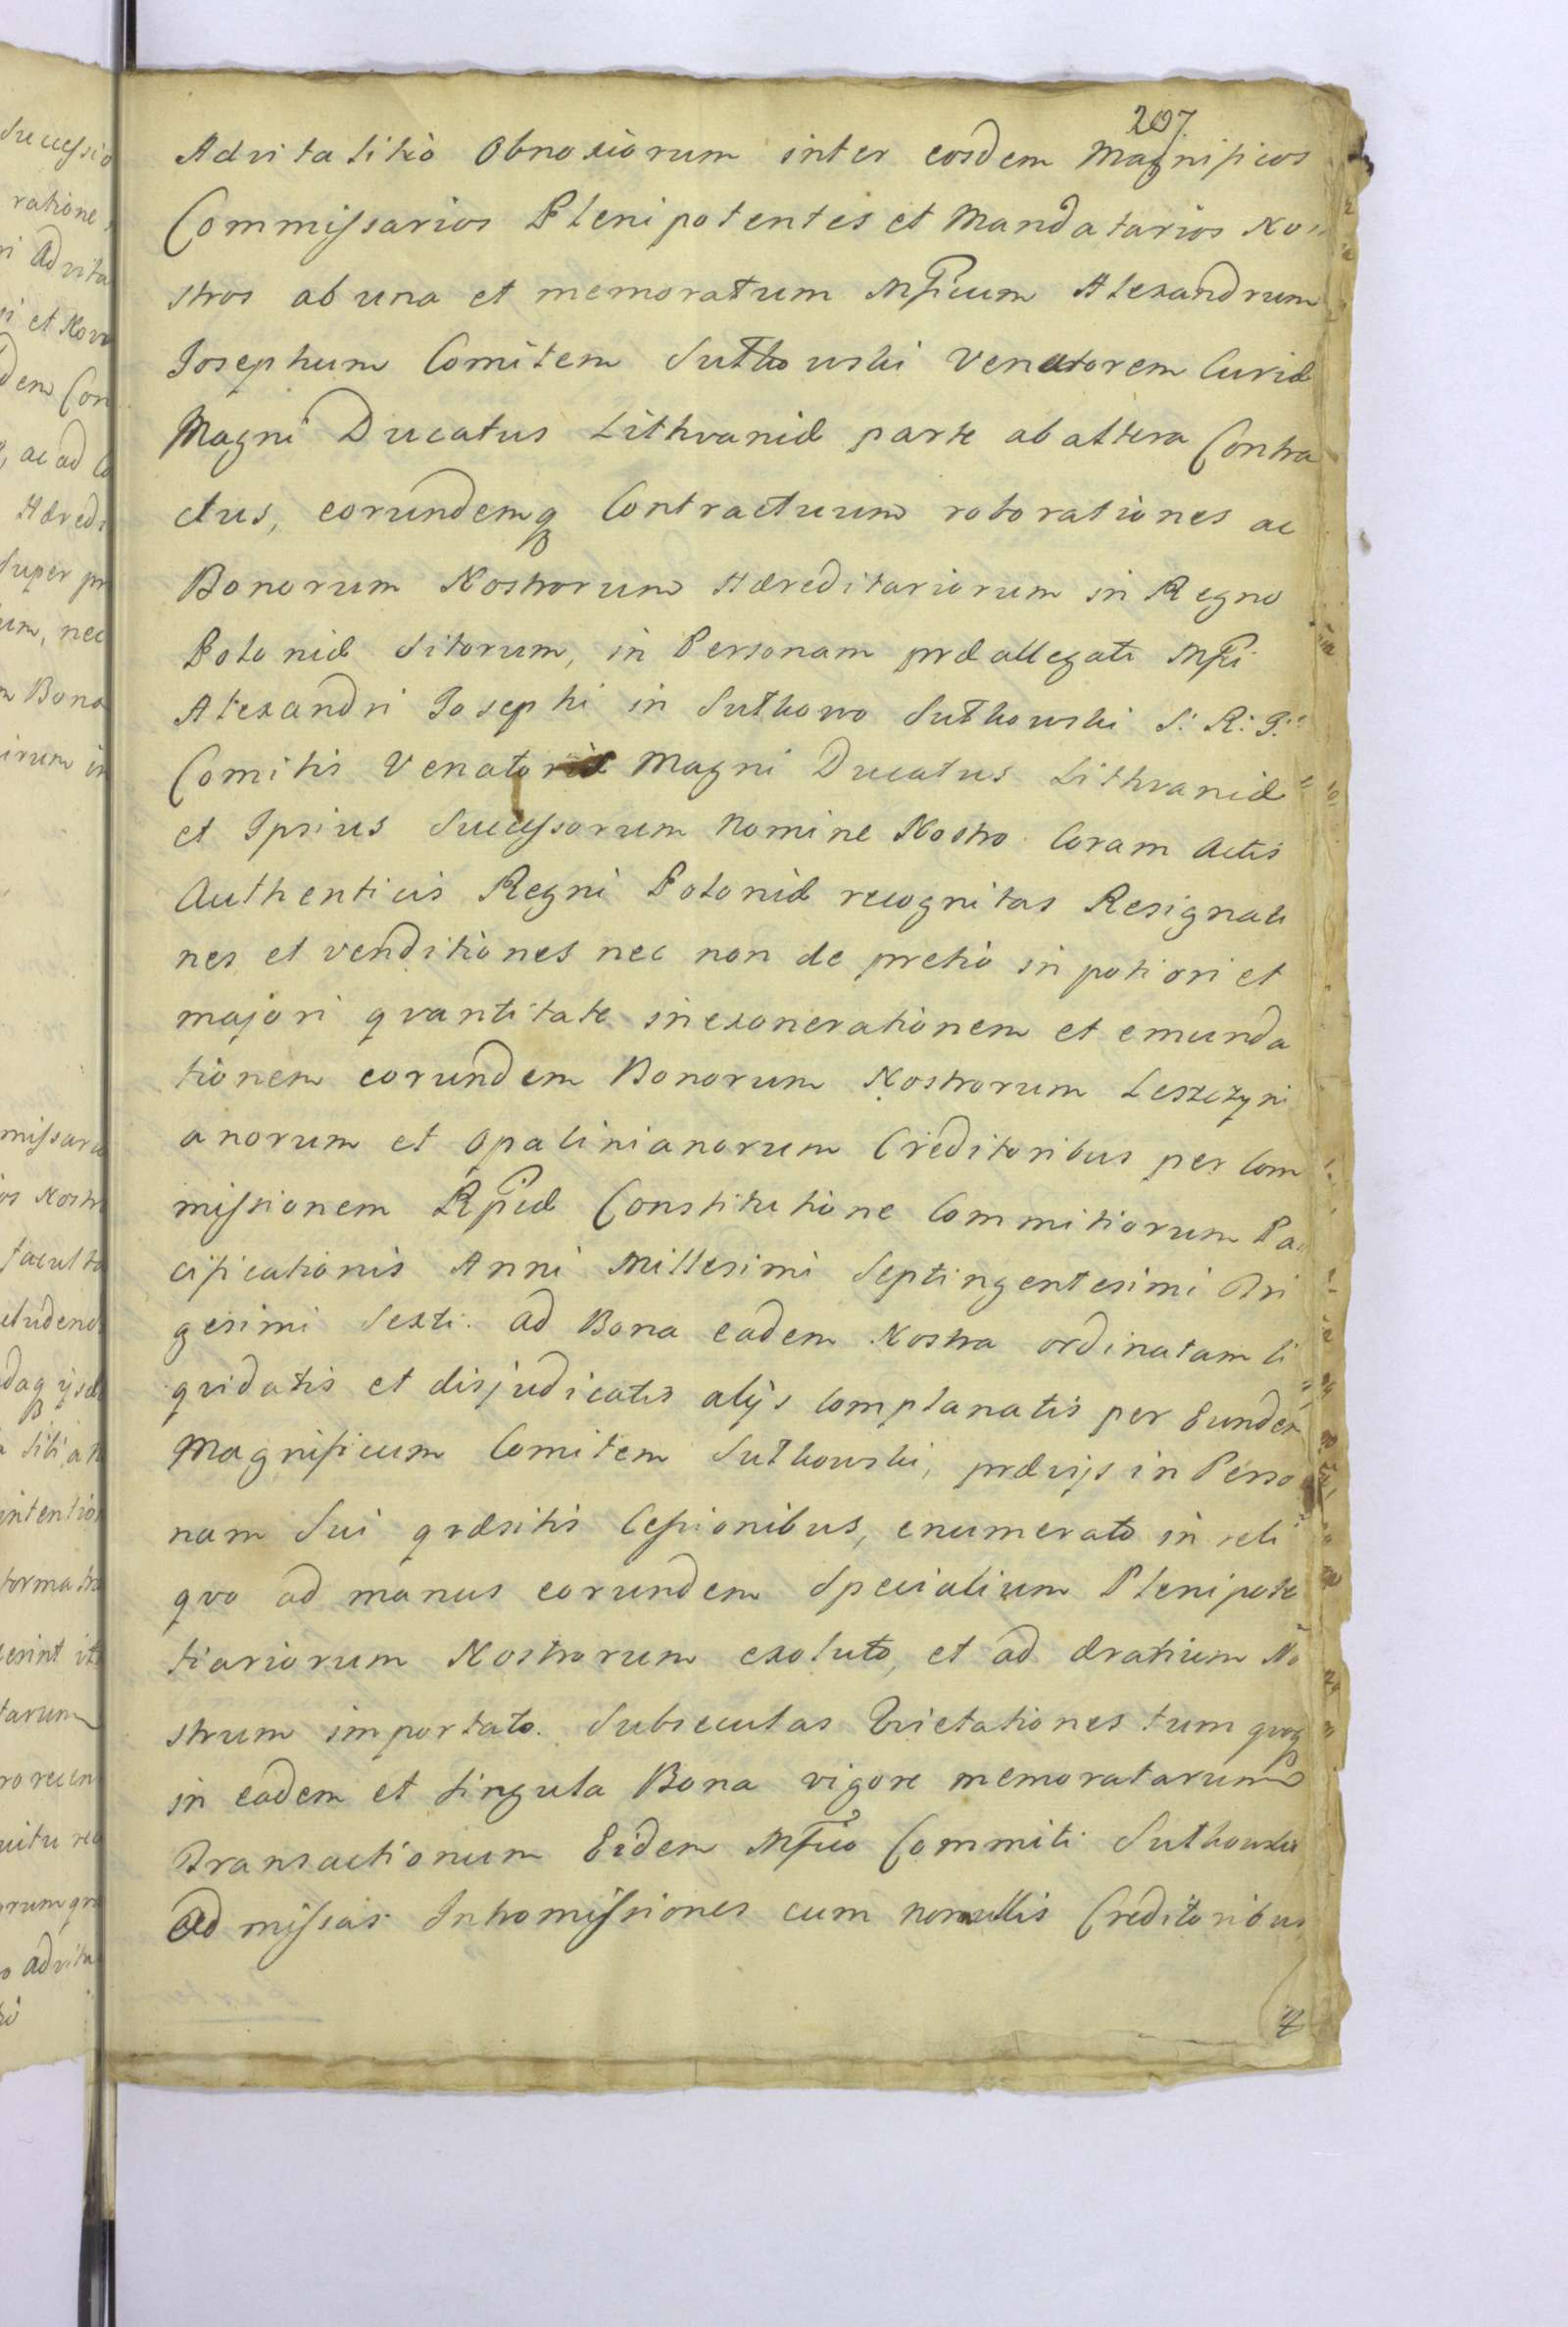 207.
Advitalitiô Obnoxiorum inter eosdem Magnificos
Commissarios Plenipotentes et Mandatarios No-
stros ab una et memoratum Mficum Alexandrum
Josephum Comitem Sułkowski Venatorem Curiæ
Magni Ducatus Lithvaniæ parte ab altera Contra
ctus, eorundemq Contractuum roborationes ac
Bonorum Nostrorum Hæreditariorum in Regno
Poloniæ Sitorum, in Personam præallegati Mfci
Alexandri Josephi in Sułkowo Sułkowski S: R: I:
Comitis Venatoris Magni Ducatus Lithvaniæ
et Ipsius Successorum Nomine Nostro Coram Actis
Authenticis Regni Poloniæ recognitas Resignati
nes et venditiones nec non de pretio in potiori et
majori qvantitate in exonerationem et emunda
tionem eorundem Bonorum Nostrorum Leszczyni
anorum et Opalinianorum Creditoribus per Com
missionem Rpcæ Constitutione Commitiorum Pa-
cificationis Anni Millesimi Septingentesimi Tri
gesimi Sexti. ad Bona eadem Nostra ordinatam li
qvidatis et disjudicatis alijs Complanatis per Eundem
Magnificum Comitem Sułkowski, prævijs in Perso
nam Sui qvæsitis Cessionibus, enumerato in reli
qvo ad manus eorundem Specialium Plenipote
tiariorum Nostrorum exoluto, et ad ærarium No
strum importato. Subsecutas Qvietationes tum qvoq
in eadem et singula Bona vigore memoratarum
Transactionum Eidem Mfico Commiti Sułkowski
Admissas Intromissiones cum nonullis Creditoribus